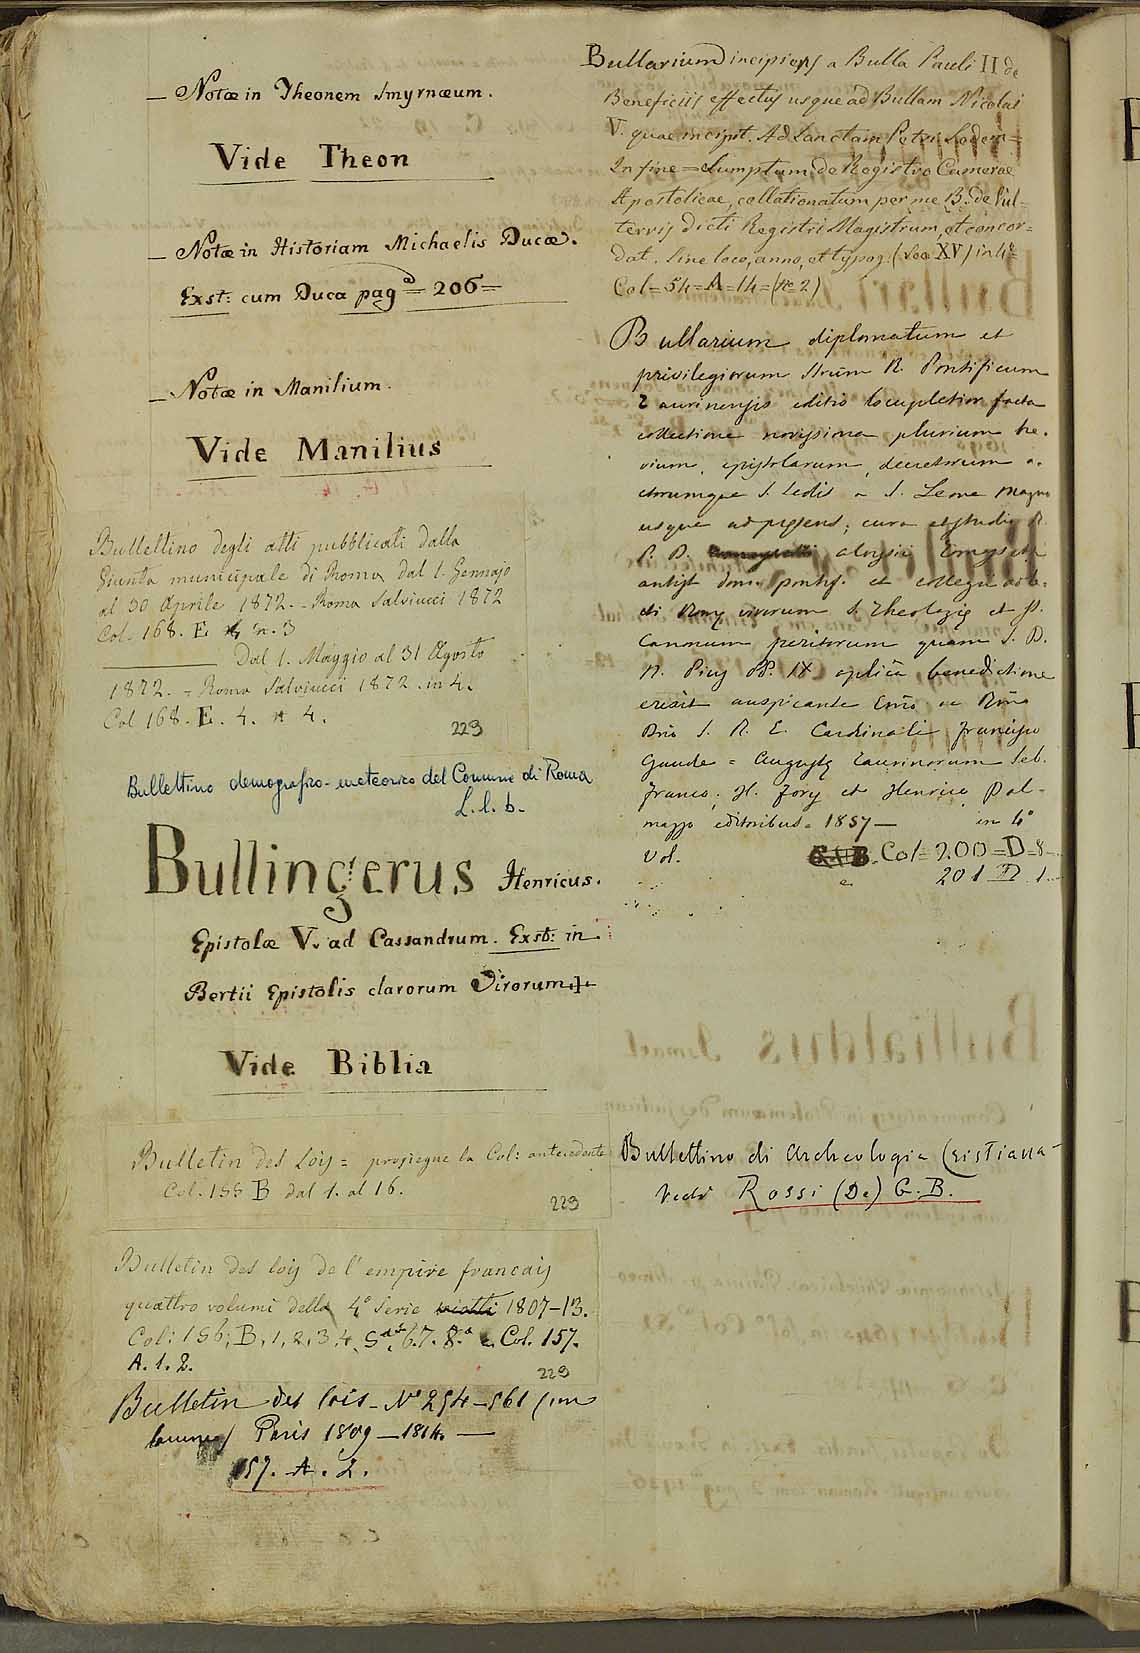 — Notæ in Theonem Smyrnæum.
Vide Theon
— Notæ in Historiam Michaelis Ducæ.
Exst: cum Duca pag.ª = 206 =
— Notæ in Manilium.
Vide Manilius
Bullettino degli atti pubblicati dalla
Giunta municipale di Roma dal 1. Gennajo
al 30 Aprile 1872. - Roma Salviucci 1872
Col. 168. E. n. 3
Dal 1. Maggio al 31 Agosto
1872. = Roma Salviucci 1872. in 4.
Col 168. E. 4. n 4.
229
Bullettino demografico-meteorico del Comune di Roma
L. l. b.
Bullingerus Henricus.
Epistolæ V. ad Cassandrum. Exst: in
Bertii Epistolis clarorum Virorum
Vide Biblia
Bulletin des Lois = prosiegue la Col: antecedente
Col. 155 B dal 1. al 16.
229
Bulletin des lois de l'empire francais
quattro volumi della 4ª Serie 1807-13.
Col: 156, B, 1, 2, 3, 4, 5, 6. 7. 8.ª e Col. 157.
A. 1. 2.
229
Bulletin des lois - Nº 254 - 561 (un
Paris 1809 — 1814. —
157. A. 2.
Bullarium incipiens a Bulla Pauli II de
Beneficiis effectus usque ad Bullam Nicolai
V. quae incipit. Ad Sanctam Petri Sedem =
In fine = Sumptum de Registro Camerae
Apostolicae, collationatum per me B. de Pul-
terris dicti Registri Magistrum, et concor=
dat. Sine loco, anno, et typog. (Sec XV) in 4º
Col = 54 = A = 14 = (nº 2)
Bullarium diplomatum et
privilegiorum Strum R. Pontificum
Taurinensis editio locupletior facta
collectione novissima plurium bre.
vium, epistolarum, decretorum a.
ctorumque S. Sedis a S. Leone Magno
usque ad presens; cura et studio R.
P. D. Aloysii Tomassetti
antist dom. pontif. et collegii adle.
cti Romæ virorum S. Theologiæ et SS.
Canonum peritorum quam S. D.
N. Pius PP. IX aplica benedictione
erexit auspicante Emo ac Rmo
Dno S. R. E. Cardinali Francisco
Gaude = Augustæ Taurinorum Seb.
Franco, H. Fory et Henrico Dal-
mazzo editoribus. 1857 — in 4º
Vol. Col = 200 = D = 8
201 D. 1
Bullettino di Archeologia Cristiana -
Vedi Rossi (De) G. B.